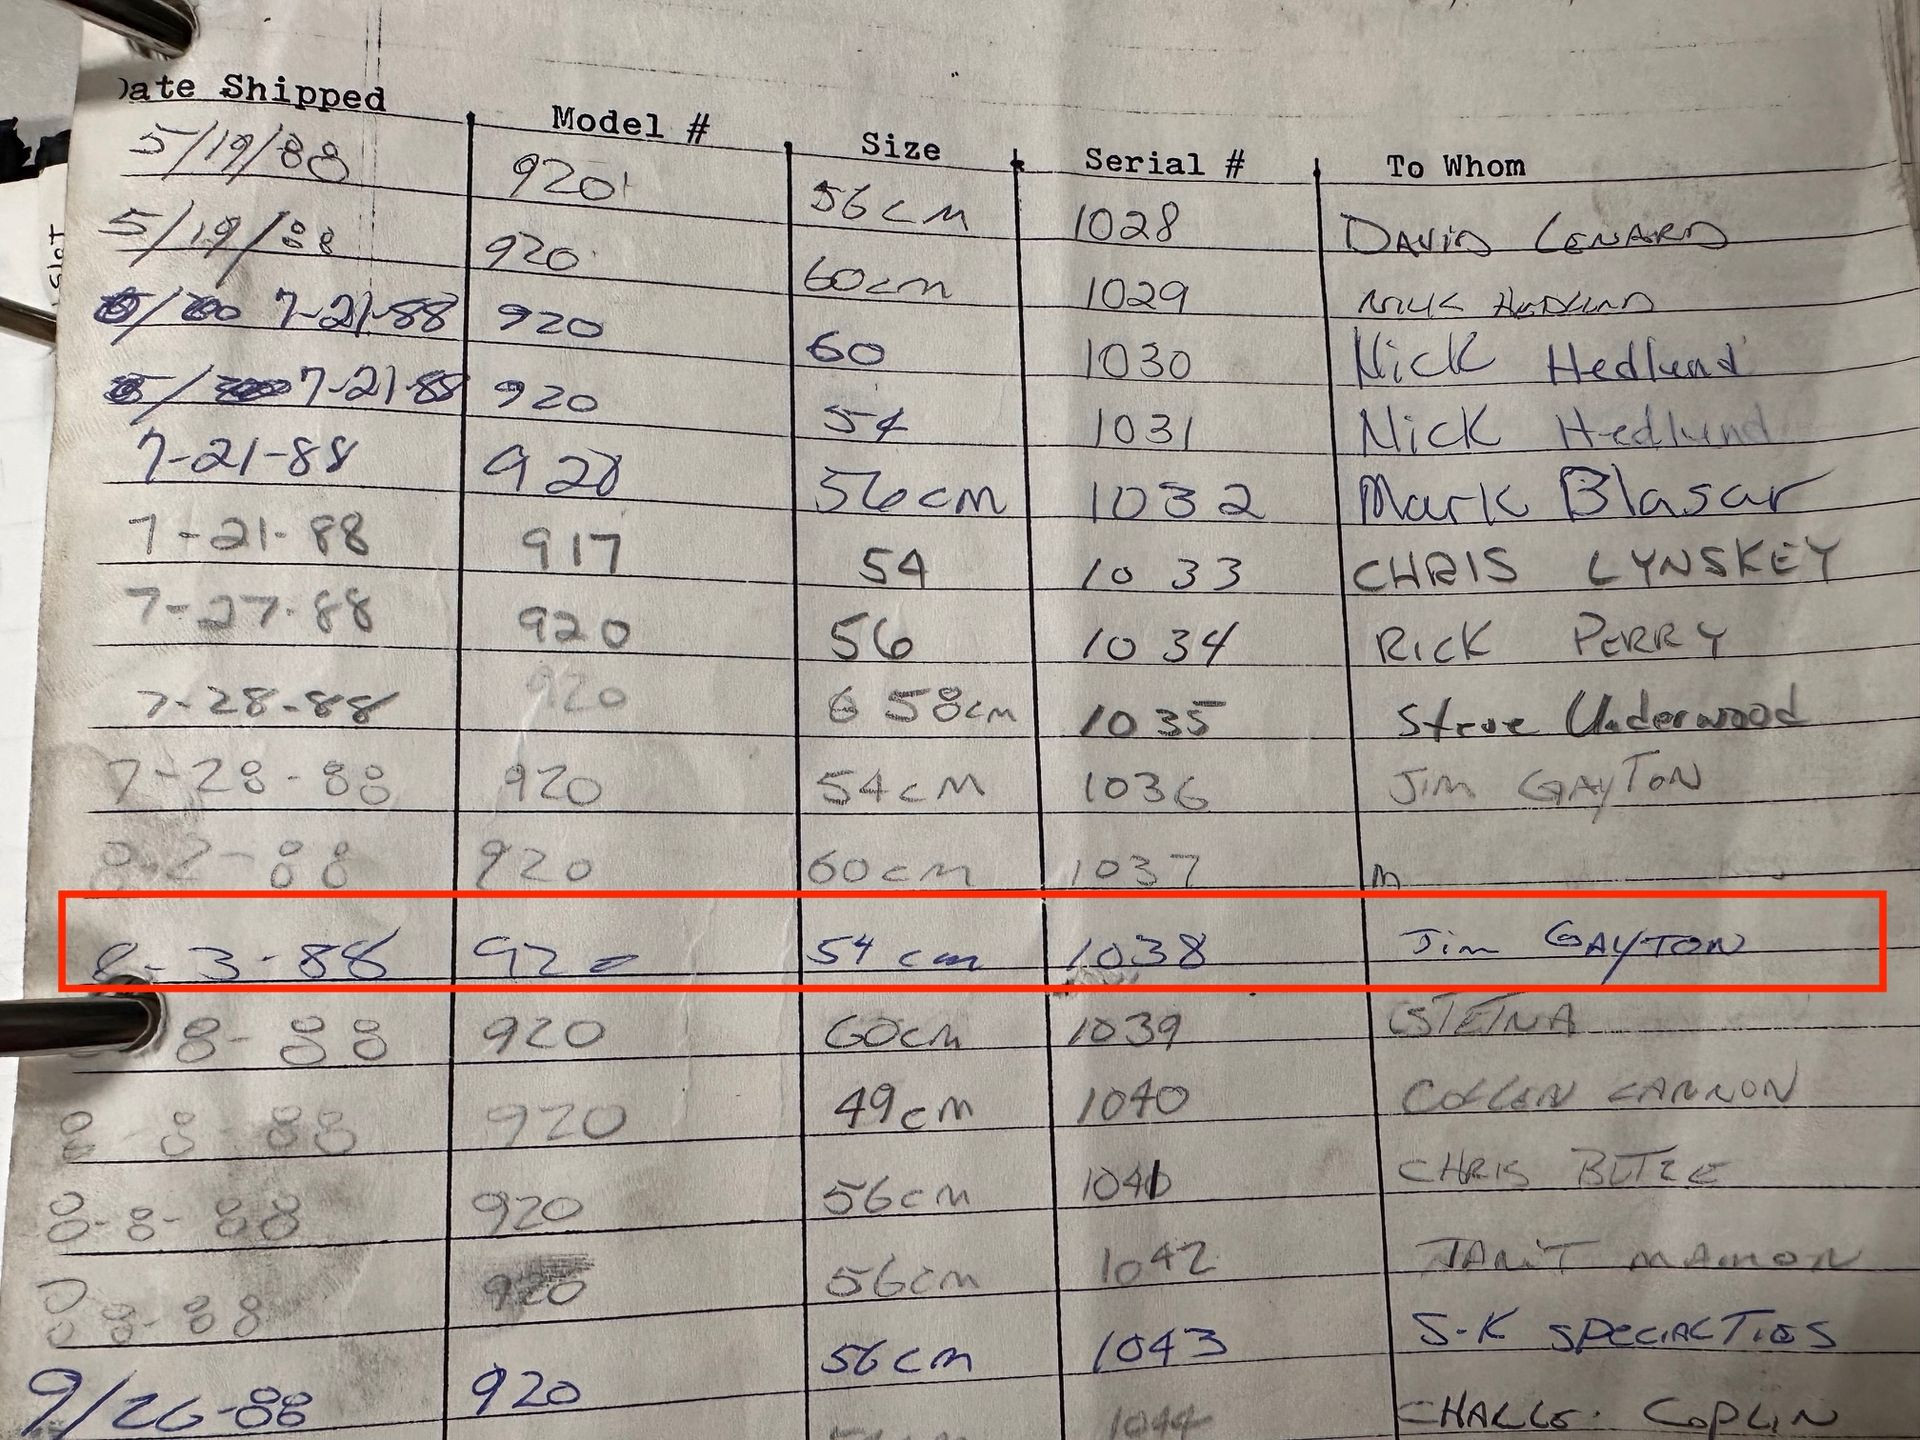 Date Shipped Model # Size Serial # To Whom
5/19/88 920 56cm 1028 DAVID LENARD
5/19/88 920 60cm 1029 NICK HEDLUND
7-21-88 920 60 1030 Nick Hedlund
7-21-88 920 54 1031 Nick Hedlund
7-21-88 920 56cm 1032 Mark Blasar
7-21-88 917 54 1033 CHRIS LYNSKEY
7-27-88 920 56 1034 RICK PERRY
7-28-88 920 6 58cm 1035 Steve Underwood
7-28-88 920 54cm 1036 Jim GAYTON
8-2-88 920 60cm 1037 m
8-3-88 920 54 cm 1038 Jim GAYTON
8-88 920 60cm 1039 STETNA
8-8-88 920 49cm 1040 CANNON
8-8-88 920 56cm 1041 CHRIS
8-88 920 56cm 1042
9/26-88 920 56cm 1043 S-K SPECIALTIES
1044 COPLIN
slot